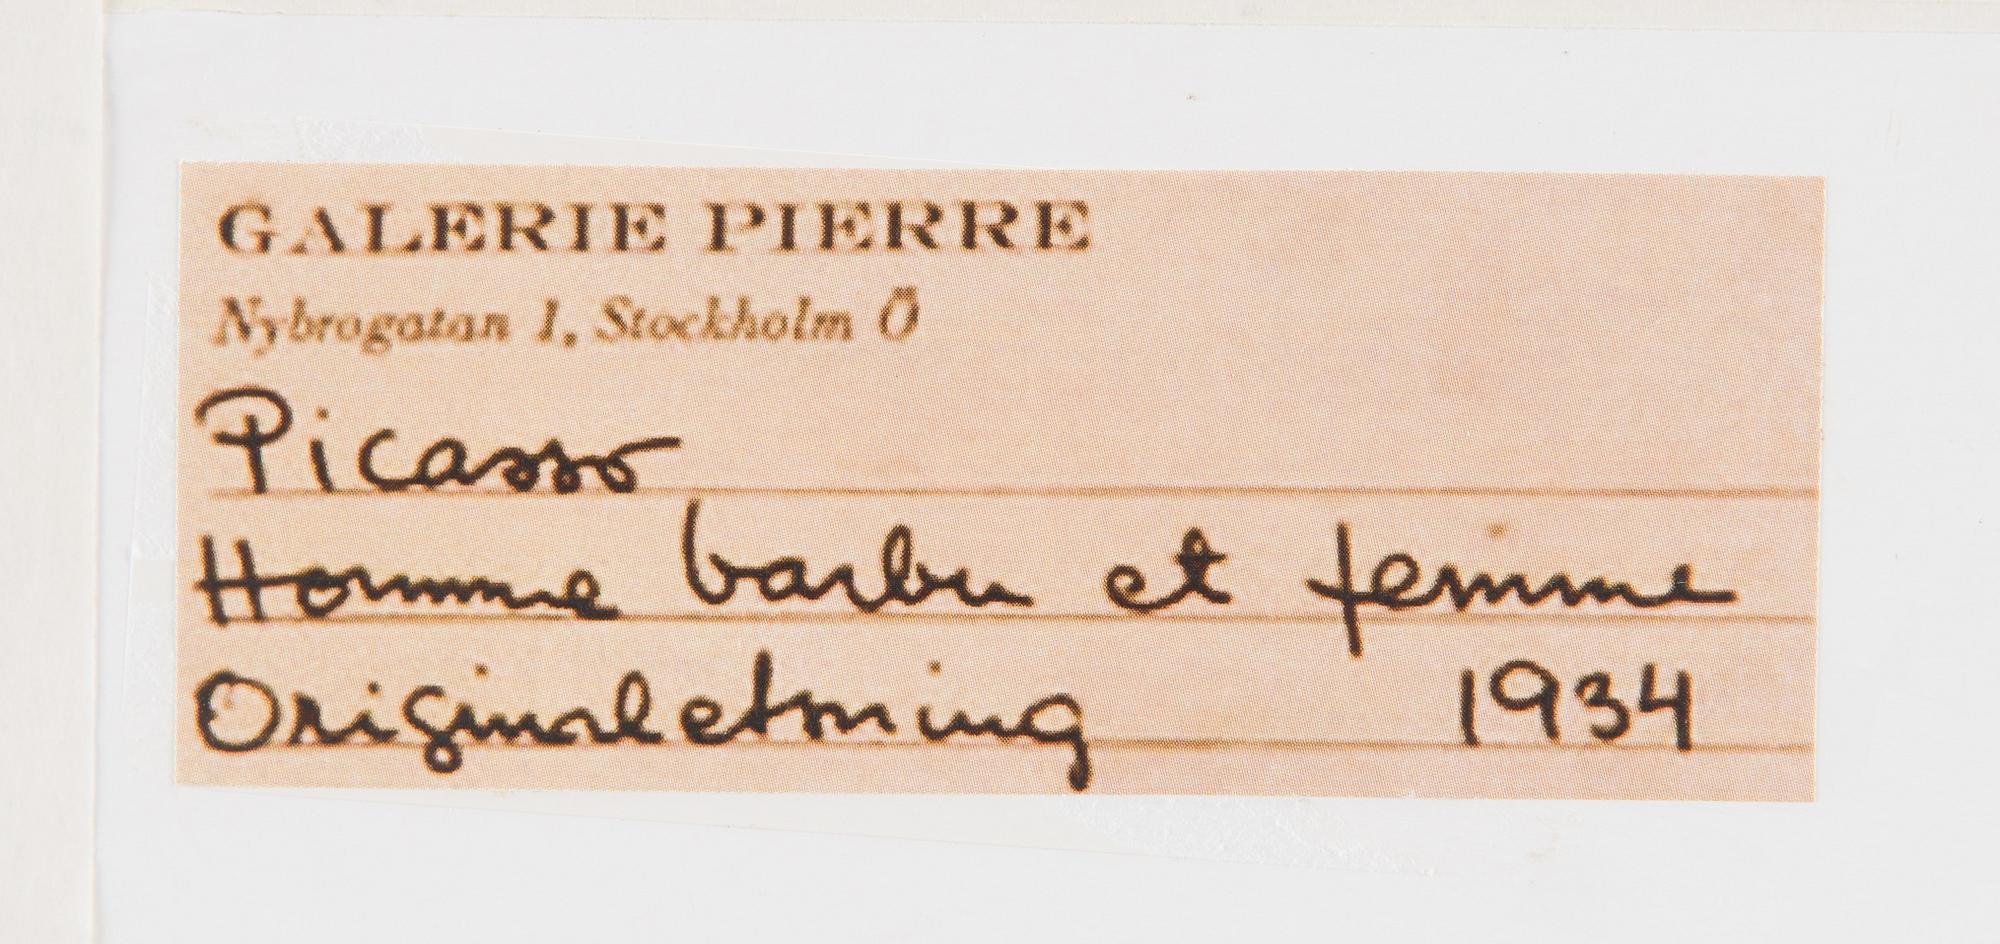 GALERIE PIERRE
Nybrogatan 1, Stockholm Ö
Picasso
Homme barbu et femme
Originaletsning 1934